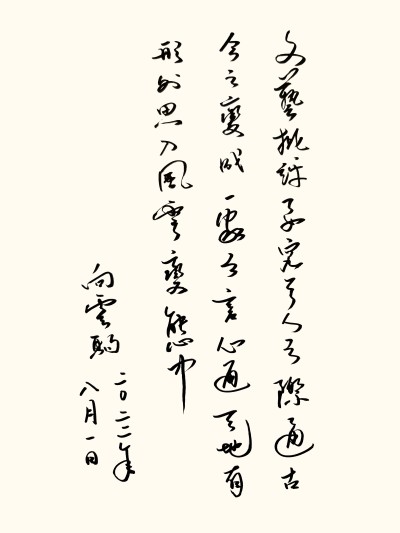 文藝批評要究天人之際通古
今之變成一家之言心通天地有
形外思入風雲變態中
向雲駒
二〇二二年
八月一日